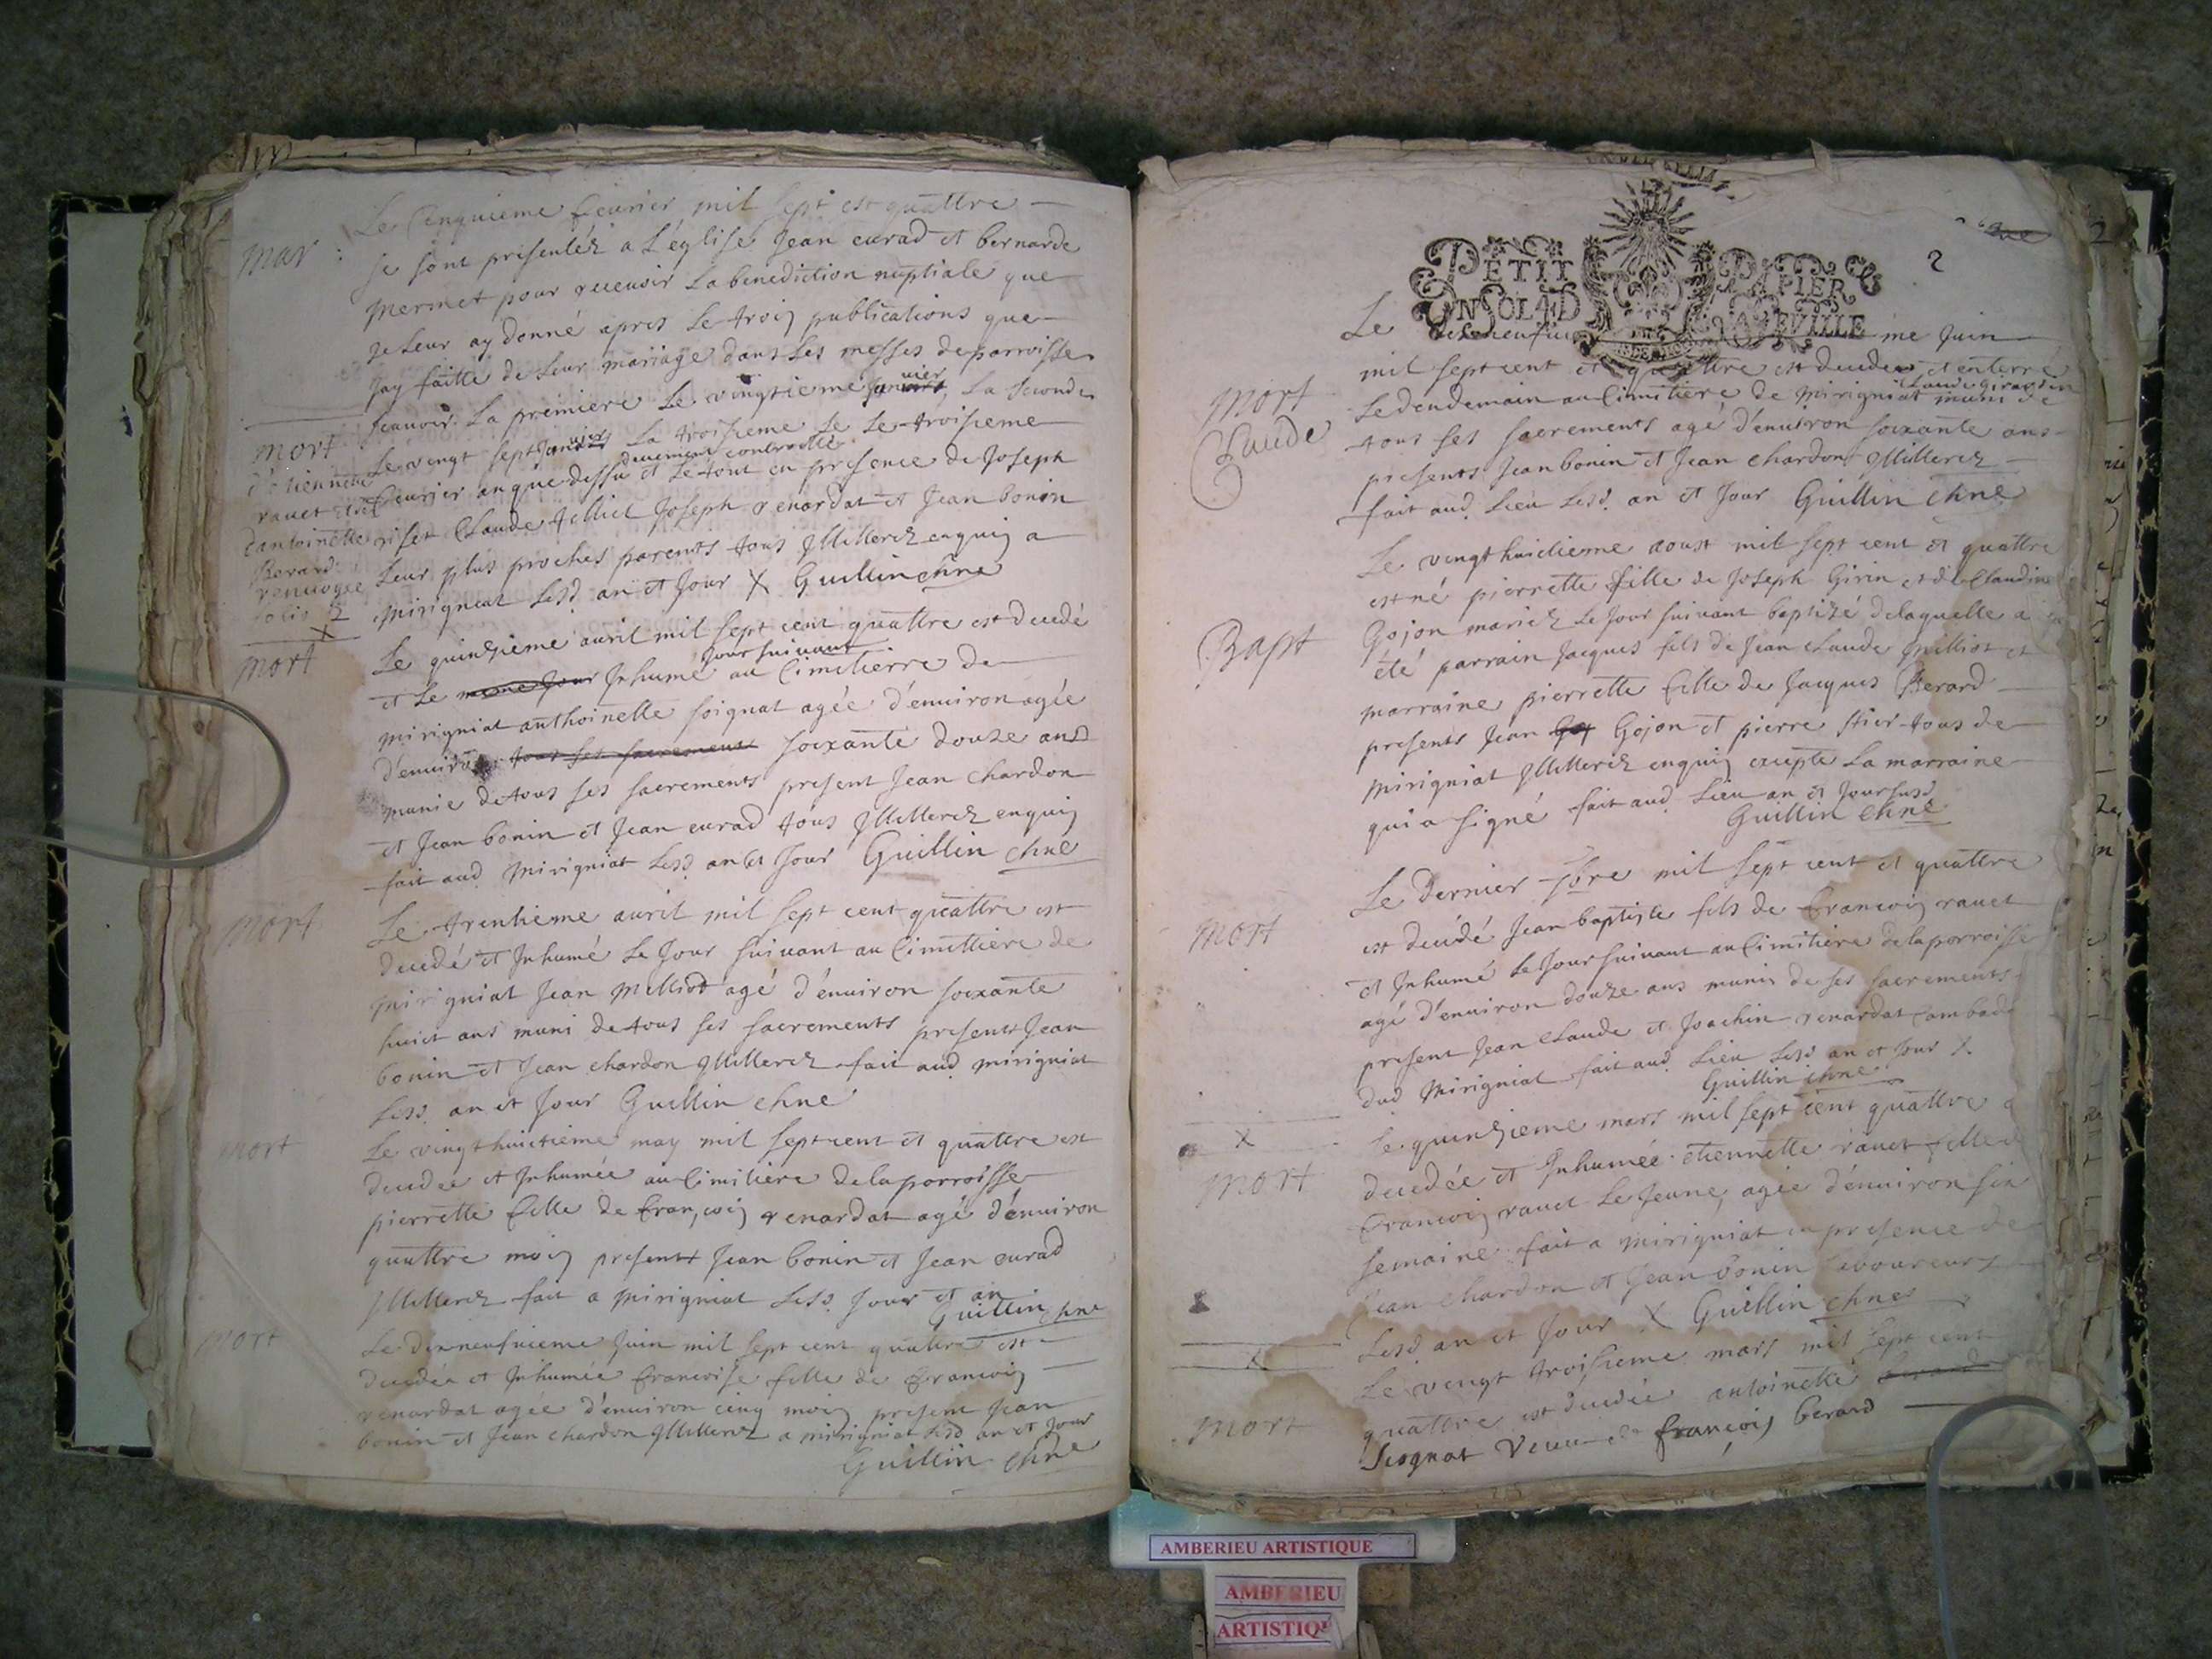 Le Cenquieme feurier mil sept est quattre
mar :
se sont presentéz a L'eglise Jean curad et bernarde
mermet pour receuoir La benediction nuptiale que
Je Leur ay donné apres Le trois publications que
Jay faitte de Leur mariage dans Les messes de parroisse
scauoir La premiere Le vingtieme januier, La seconde
mort
d'etiennette
rauet et
d'antoinette
Berard
renuoyee
folio 2
Le vengt sept januier La troisieme Le Le troisieme
deuement controllé
feurier an que dessu et Le tout en presence de Joseph
Claude Milliet Joseph renardat et Jean bonin
Leur plus proches parents tous Jllitterez enquis a
mirigneat Lesd. an et Jour X Guillin chne
mort
Le quinzieme auril mil sept cent quattre est decedé
jour suivant
et Le meme jour Jnhumé au Cimetierre de
mirigniat anthoinette soignat agée d'enuiron agée
d'enuiron tous ses sacrements soixante douze ans
munie de tous ses sacrements present Jean chardon
et Jean bonin et Jean curad tous Jllitterez enquis
fait aud. mirigniat Lesd. an et Jour Guillin chne
mort
Le trentieme auril mil sept cent quattre est
decedé et Jnhumé Le Jour suiuant au Cimettiere de
mirigniat Jean Milliot agé d'enuiron soixante
huict ans muni de tous ses sacrements present Jean
bonin et Jean chardon Jllitterez fait aud. mirigniat
Lesd. an et Jour Guillin chne
mort
Le vingt huictieme may mil sept cent et quattre est
decedee et Jnhumée au Cimitiere de la porroisse
pierrette fille de françois renardat agé d'enuiron
quattre mois present Jean bonin et Jean curad
Jllitterez fait a mirigniat Lesd. Jour et an
Guillin chne
mort
Le dixneufuieme Juin mil sept cent quattre est
decedée et Jnhumée francoise fille de francois
renardat agée d'enuiron cinq mois present Jean
bonin et Jean chardon Jllitterez a mirigniat Lesd an et Jour
Guillin chne
2
PETIT PAPIER
UN SOL 4D LA FEVILLE
Le dixneufuieme Juin
mil sept cent et quattre est decedé et enterré
Claude girardin
mort
Claude
Le Lendemain au Cimitiere de mirigniat muni de
tous ses sacrements agé d'enuiron soixante ans
presents Jean bonin et Jean chardon Jllitterez
fait aud. Lieu Lesd. an et Jour Guillin chne
Le vingt huictieme aoust mil sept cent et quattre
est né pierrette fille de Joseph Girin et de Claudine
Bapt
Gojon mariez Le Jour suiuant baptizé de laquelle a
été parrain Jacques fils de Jean Claude Milliot et
marraine pierrette fille de Jacques Berard
presents Jean Goj Gojon et pierre stier tous de
mirigniat Jllitterez enquis excepte La marraine
qui a signé fait aud. Lieu an et Jour susd
Guillin chne
Le dernier 7bre mil sept cent et quattre
mort
est decédé Jean baptiste fils de francois rauet
et Jnhumé Le Jour suiuant au Cimitiere de la porroisse
agé d'enuiron douze ans munis de ses sacrements
present Jean Claude et Joachin renardat
dud mirigniat fait aud. Lieu Lesd an et Jour X
Guillin chne
X
Le quinzieme mars mil sept cent quattre
mort
decedée et Jnhumée etiennette rauet fille de
francois rauet Le Jeune, agée d'enuiron six
semaine fait a mirigniat en presence de
Jean chardon et Jean bonin Laboureurs
Lesd an et Jour X Guillin chne
X
Le vengt troisieme mars mil sept cent
mort
quattre est decedée antoinette berard
Siognat Veuue de françois berard
AMBERIEU ARTISTIQUE
AMBERIEU
ARTISTIQU